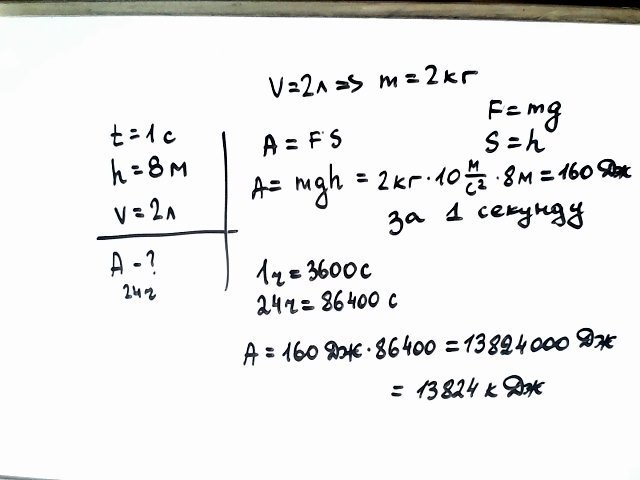 V=2л => m=2кг
t=1с
h=8м
V=2л
A-?
24ч
A=F·S
F=mg
S=h
A=mgh=2кг·10 м/с²·8м=160Дж
за 1 секунду
1ч=3600с
24ч=86400 с
A=160 Дж·86400=13824000 Дж
=13824кДж